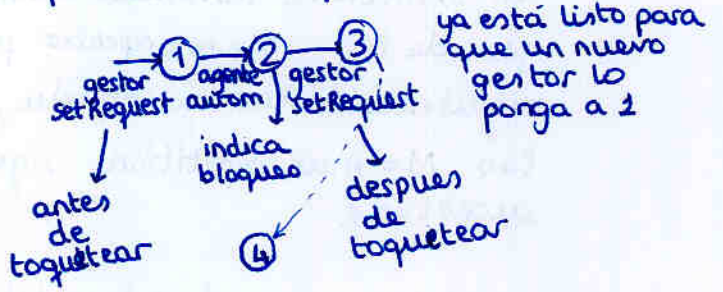 ya está listo para
que un nuevo
gestor lo
ponga a 1
1 2 3
gestor
setRequest
agente
autom
gestor
setRequest
indica
bloqueo
antes
de
toquetear
despues
de
toquetear
4